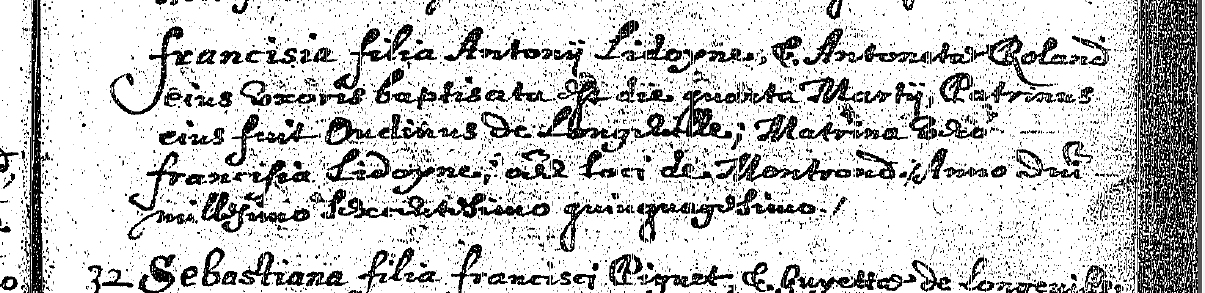 francisia filia Antonij Lidoyne, & Antoneta Roland
eius vxoris baptisata est die quarta Martij, Patrinus
eius fuit Oudinus de Longeville; Matrina vero
francisia Lidoyne; loci de Montrond. / Anno Dñi
millesimo sexcentesimo quinquagesimo. /
32 Sebastiana filia francisci Piguet, & huyetta de Longeville.